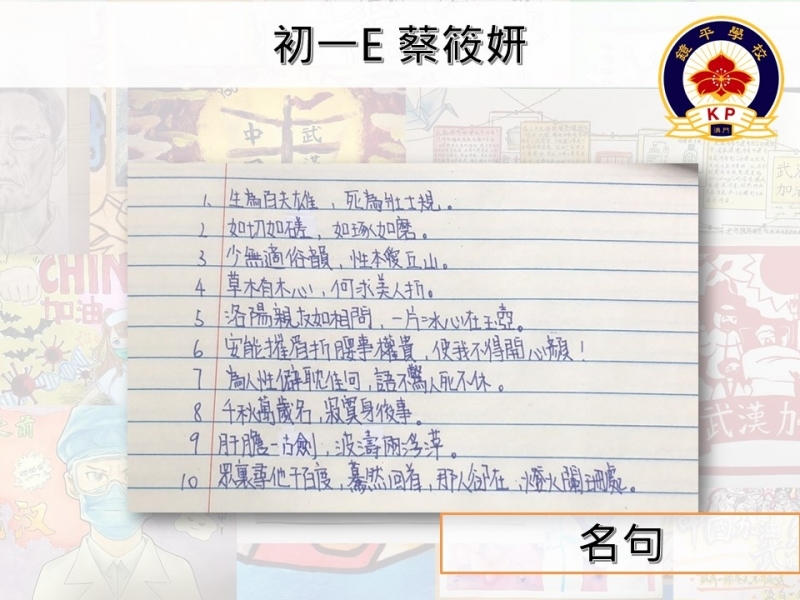 初一E 蔡筱妍
鏡平學校
KP
澳門
1、生為百夫雄，死為壯士規。
2 如切如磋，如琢如磨。
3 少無適俗韻，性本愛丘山。
4 草木有本心，何求美人折。
5 洛陽親友如相問，一片冰心在玉壺。
6 安能摧眉折腰事權貴，使我不得開心顏！
7 為人性僻耽佳句，語不驚人死不休。
8 千秋萬歲名，寂寞身後事。
9 肝膽一古劍，波濤兩浮萍。
10 眾裏尋他千百度，驀然回首，那人卻在，燈火闌珊處。
名句
CHIN
加油
武漢加